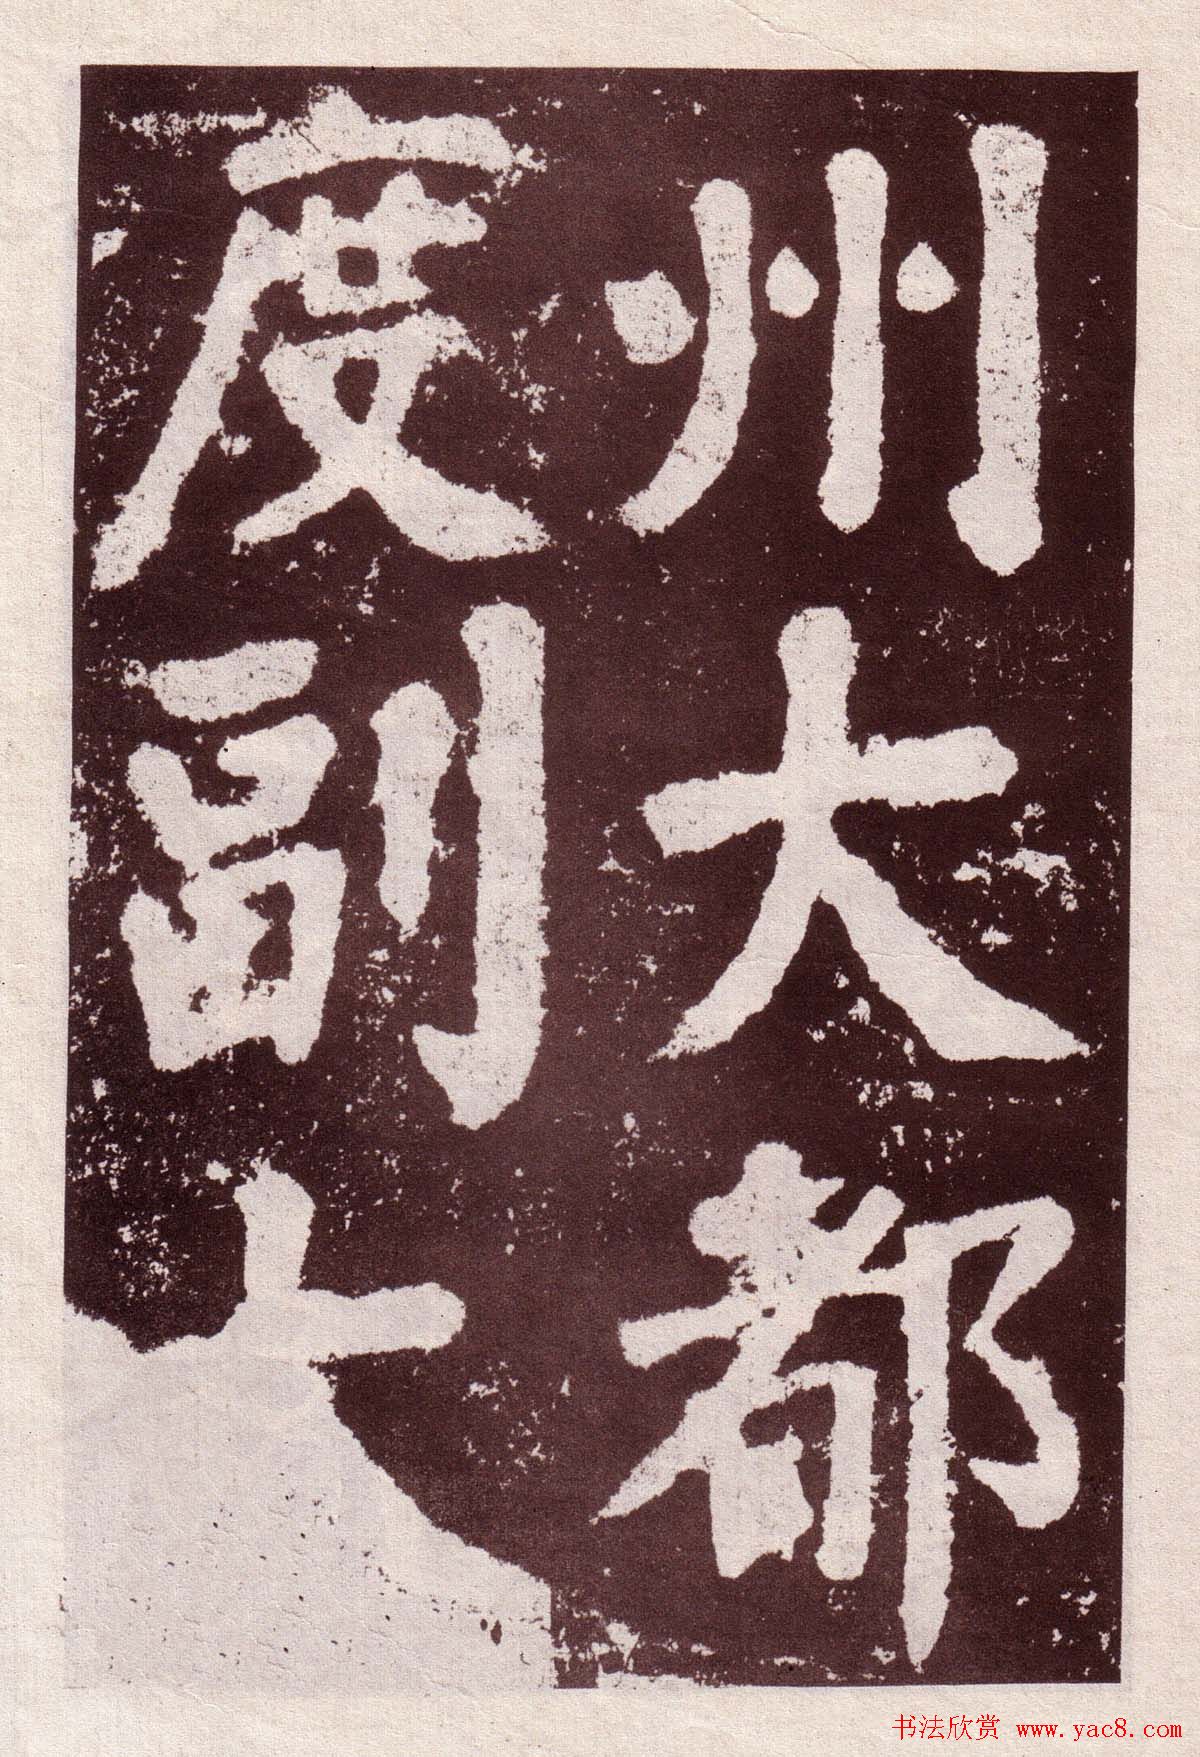 州大都
度副大
书法欣赏 www.yac8.com